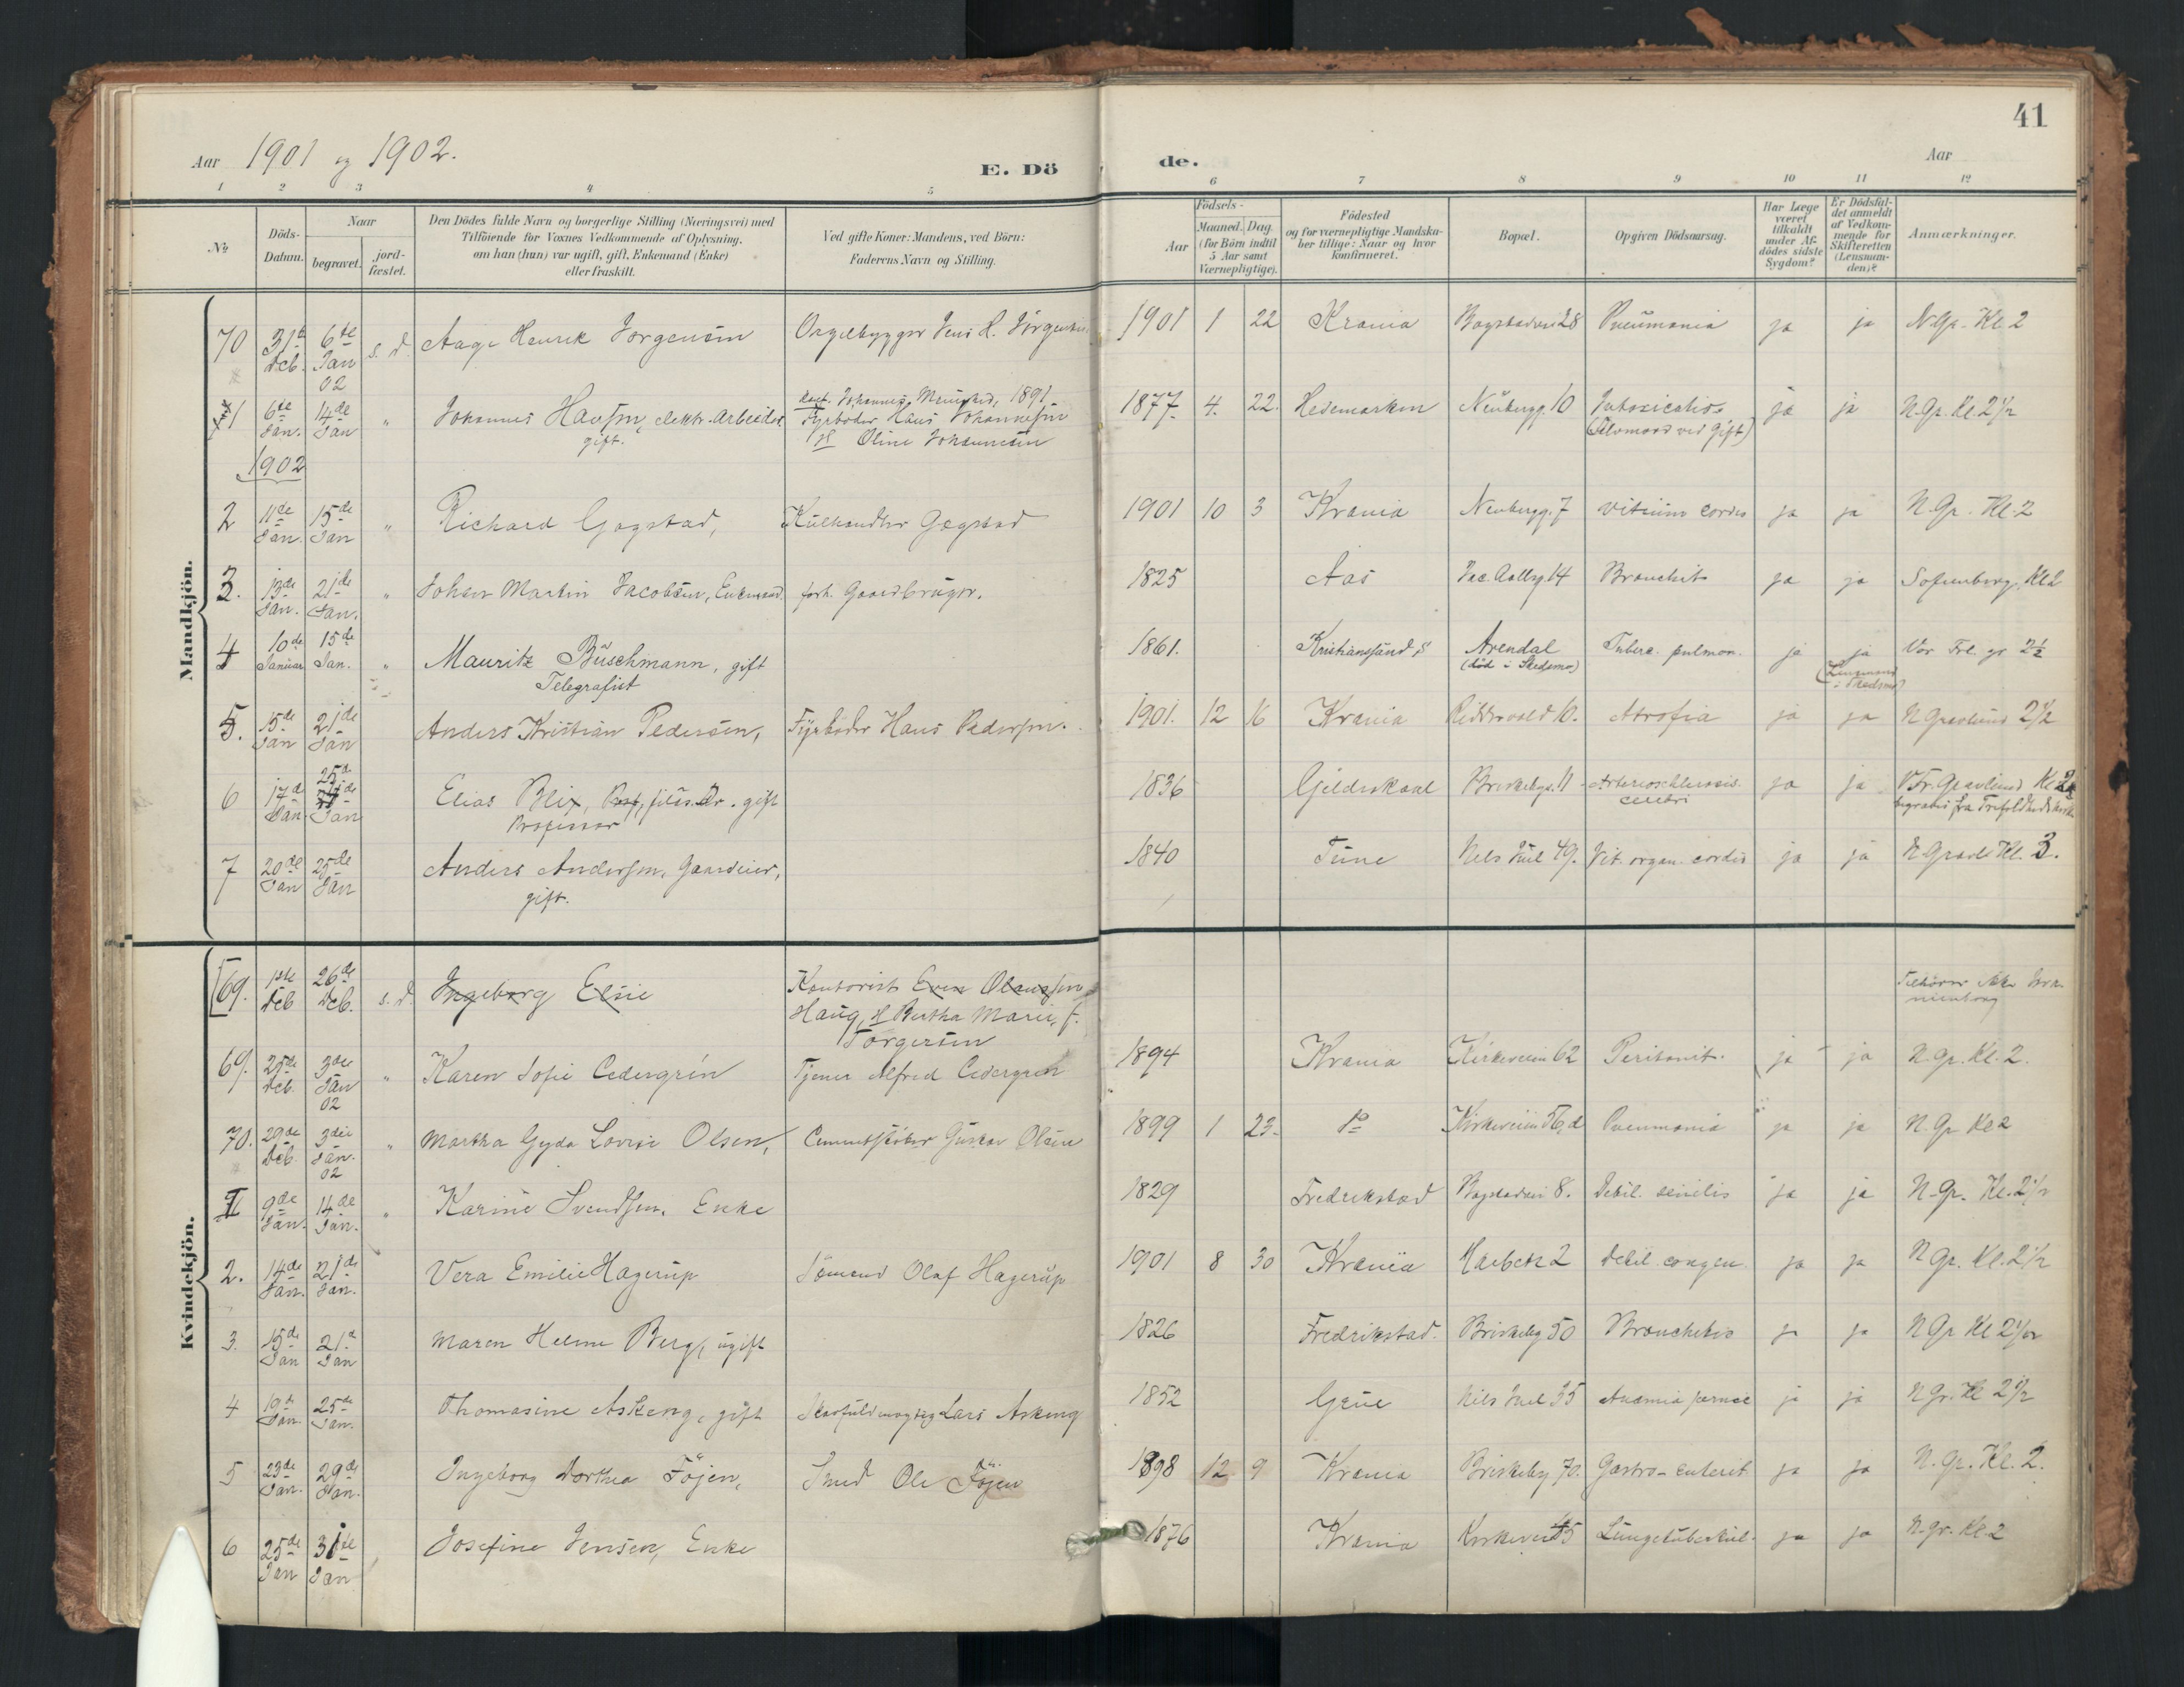 41
Aar 1901 og 1902.
E. Dö
de.
Aar
1 2 3 4 5 6 7 8 9 10 11 12
No
Döds-
Datum.
Naar
begravet.
jord-
fæstet.
Den Dödes fulde Navn og borgerlige Stilling (Næringsvei) med
Tilföiende for Voxnes Vedkommende af Oplysning,
om han (hun) var ugift, gift, Enkemand (Enke)
eller fraskilt.
Ved gifte Koner: Mandens, ved Börn:
Faderens Navn og Stilling.
Födsels-
Aar
Maaned. Dag.
(for Börn indtil
5 Aar samt
Værnepligtige).
Födested
og for værnepligtige Mandska-
ber tillige: Naar og hvor
konfirmeret.
Bopæl.
Opgiven Dödsaarsag.
Har Læge
været
tilkaldt
under Af-
dödes sidste
Sygdom?
Er Dödsfal-
det anmeldt
af Vedkom-
mende for
Skifteretten
(Lensman-
den)?
Anmærkninger.
Mandkjön.
70 31te Dcb. 6te Jan 02 s. d. Aage Henrik Jörgensen Orgelbygger Jens H. Jörgensen 1901 1 22 Krania Bogstadvei 28 Pneumonia ja ja N. Gr. Kl. 2
1 6te Jan. 14de Jan " Johannes Hansen, elektr. Arbeider gift. Fyrböder Hans Johannesen Oline Johannesen 1877. 4. 22. Hedemarken Neubergg. 10 Intoxicatio (Selvmord ved Gift) ja ja N. Gr. Kl. 2 1/2
1902
2 11de Jan. 15de Jan " Richard Gogstad, Kulhandler Gogstad 1901 10 3 Krania Neubergg. 7 vitium cordis ja ja N. Gr. Kl. 2
3. 13de Jan. 21de Jan. " Johan Martin Jacobsen, Enkemand. forh. Gaardbruger. 1825 Aas Jac. Aallsg. 14 Bronchit ja ja Sofienberg, Kl. 2
4 10de Januar 15de Jan. " Mauritz Büschmann, gift
Telegrafist 1861. Kristianssand S Arendal
(död i Skedsmo) Tuberc. pulmon. ja ja
(Lensmand
i Skedsmo) Vor Frl. gr 2 1/2
5. 15de Jan 21de Jan Anders Kristian Pedersen, Fyrböder Hans Pedersen. 1901. 12 16 Krania Riddervold 10. Atrofia ja ja N Gravlund 2 1/2
6 17de Jan. 25de Jan Elias Blix, filos. Dr. gift
Professor 1836 Gildeskaal Briskebyv. 11 Arteriosclerosis
cerebri ja ja V Fr. Gravlund Kl 2
7 20de Jan 25de Jan Anders Andersen, Gaardeier,
gift. 1840 Tune Nels Juel 49. Vit. organ. cordis ja ja N Gravl Kl. 3.
Kvindekjön.
69. 1ste Dcb 26de Dcb. s. d. Ingeborg Elsie Kontorist Even Olaussen
Haug, Bertha Marie, f.
Torgersen Tilhörer ikke Ura-
nienborg
69. 25de Dcb. 3die Jan 02 " Karen Sofie Cedergrén Tjener Alfred Cedergrén 1894 Krania Kirkeveien 62 Peritonit. ja ja N. Gr. Kl. 2.
70. 29de Dcb. 3die Jan. 02 " Martha Gyda Lovise Olsen, Cementstöber Gustav Olsen 1899 1 23. Do Kirkeveien 56, d Pneumonia ja ja N. Gr Kl 2
1 9de Jan. 14de Jan. " Karine Svendsen, Enke 1829 Fredrikstad Bogstadvei 8. Debil. senilis ja ja N. Gr. Kl. 2 1/2
2. 14de Jan. 21de Jan. Vera Emilie Hagerup Sömand Olaf Hagerup 1901 8 30 Krania 2 Debil. congen. ja ja N Gr. Kl. 2 1/2
3. 15de Jan 21de Jan Maren Helene Berg, ugift 1826 Fredrikstad. Briskeby 50 Bronchitis ja ja N Gr Kl 2 1/2
4 19de Jan. 25de Jan. Thomasine Askeng, gift Lars Askeng 1852 Grue Nils Juel 35 Anæmia pernic ja ja N Gr. Kl 2 1/2
5 23de Jan. 29de Jan. Ingeborg Dorthea Föjen, Smed Ole Föjen 1898 12 9 Krania Briskeby 70. Gastro-enterit ja ja N. Gr. Kl. 2.
6 25de Jan 31te Jan Josefine Jensen, Enke 1876 Krania Lungetuberkul. ja ja N. Gr. Kl. 2